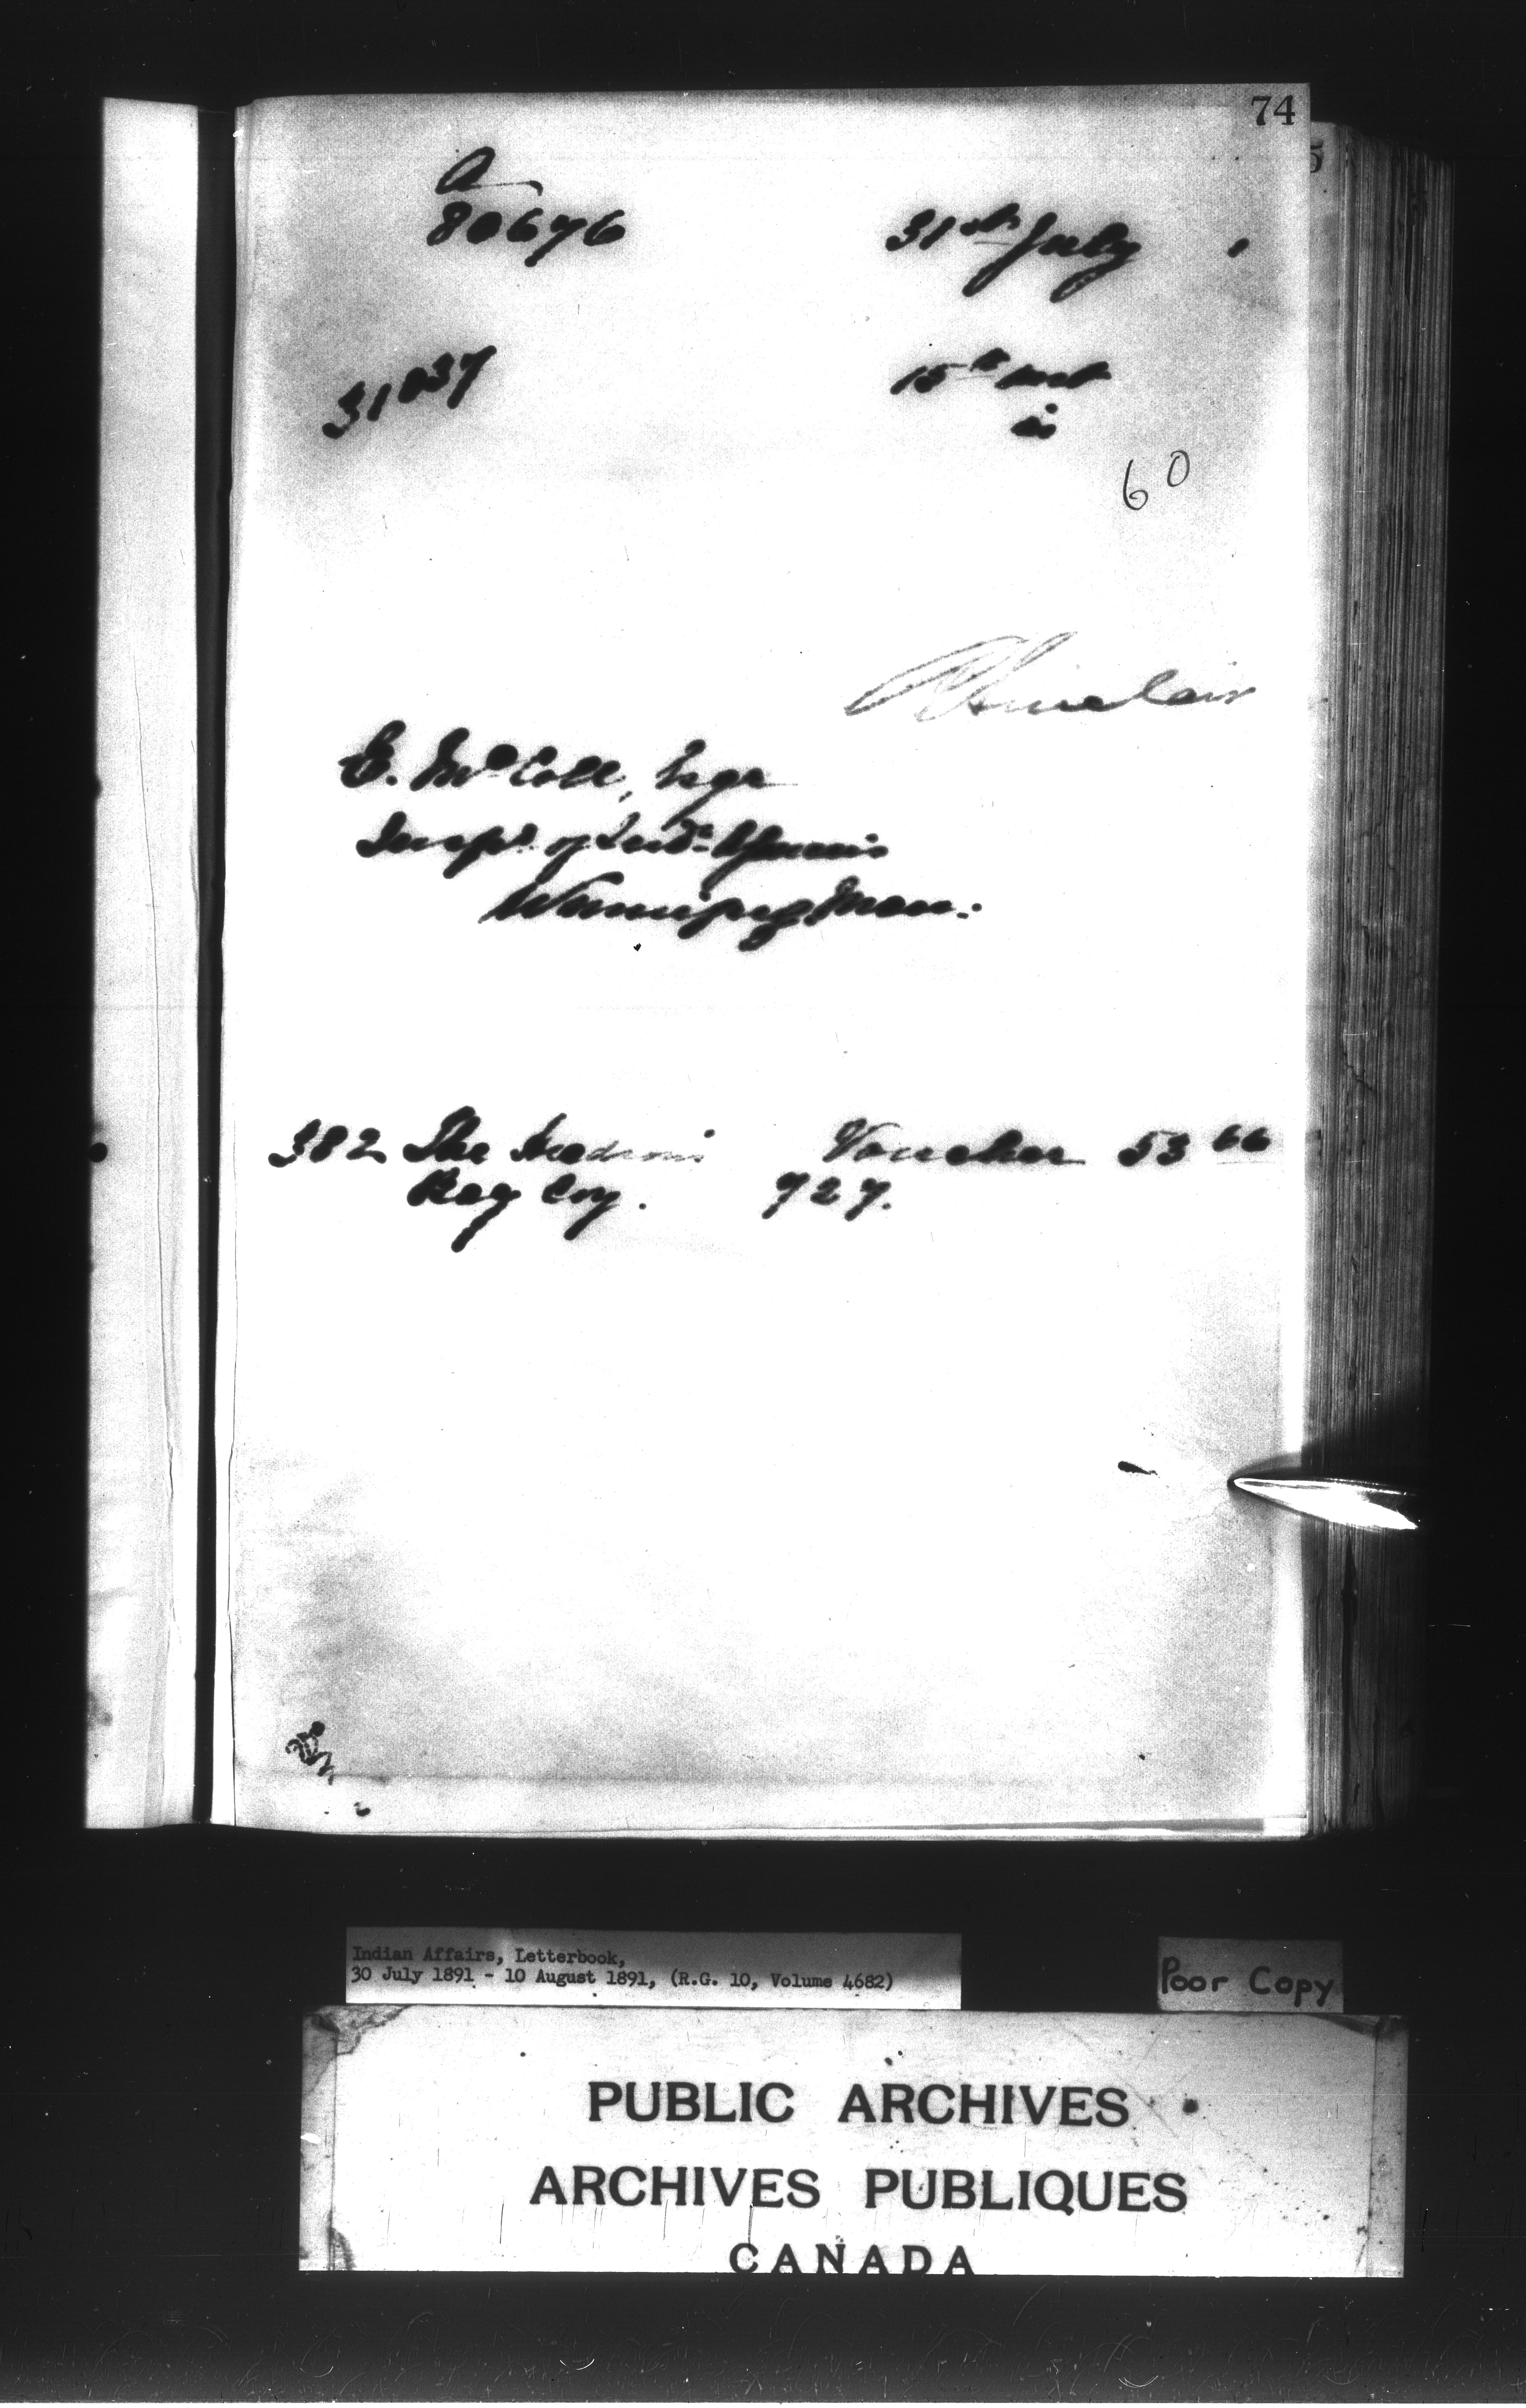 74
A
80676 31st July
31837 15th inst
is
60
R Sinclair
E. McColl, Esqr
Inspr. of Inds. Agencies
Winnipeg Man:
382 The Hudson's Voucher 53 66
Bay Coy. 727.
Indian Affairs, Letterbook,
30 July 1891 - 10 August 1891, (R.G. 10, Volume 4682)
Poor Copy
PUBLIC ARCHIVES
ARCHIVES PUBLIQUES
CANADA